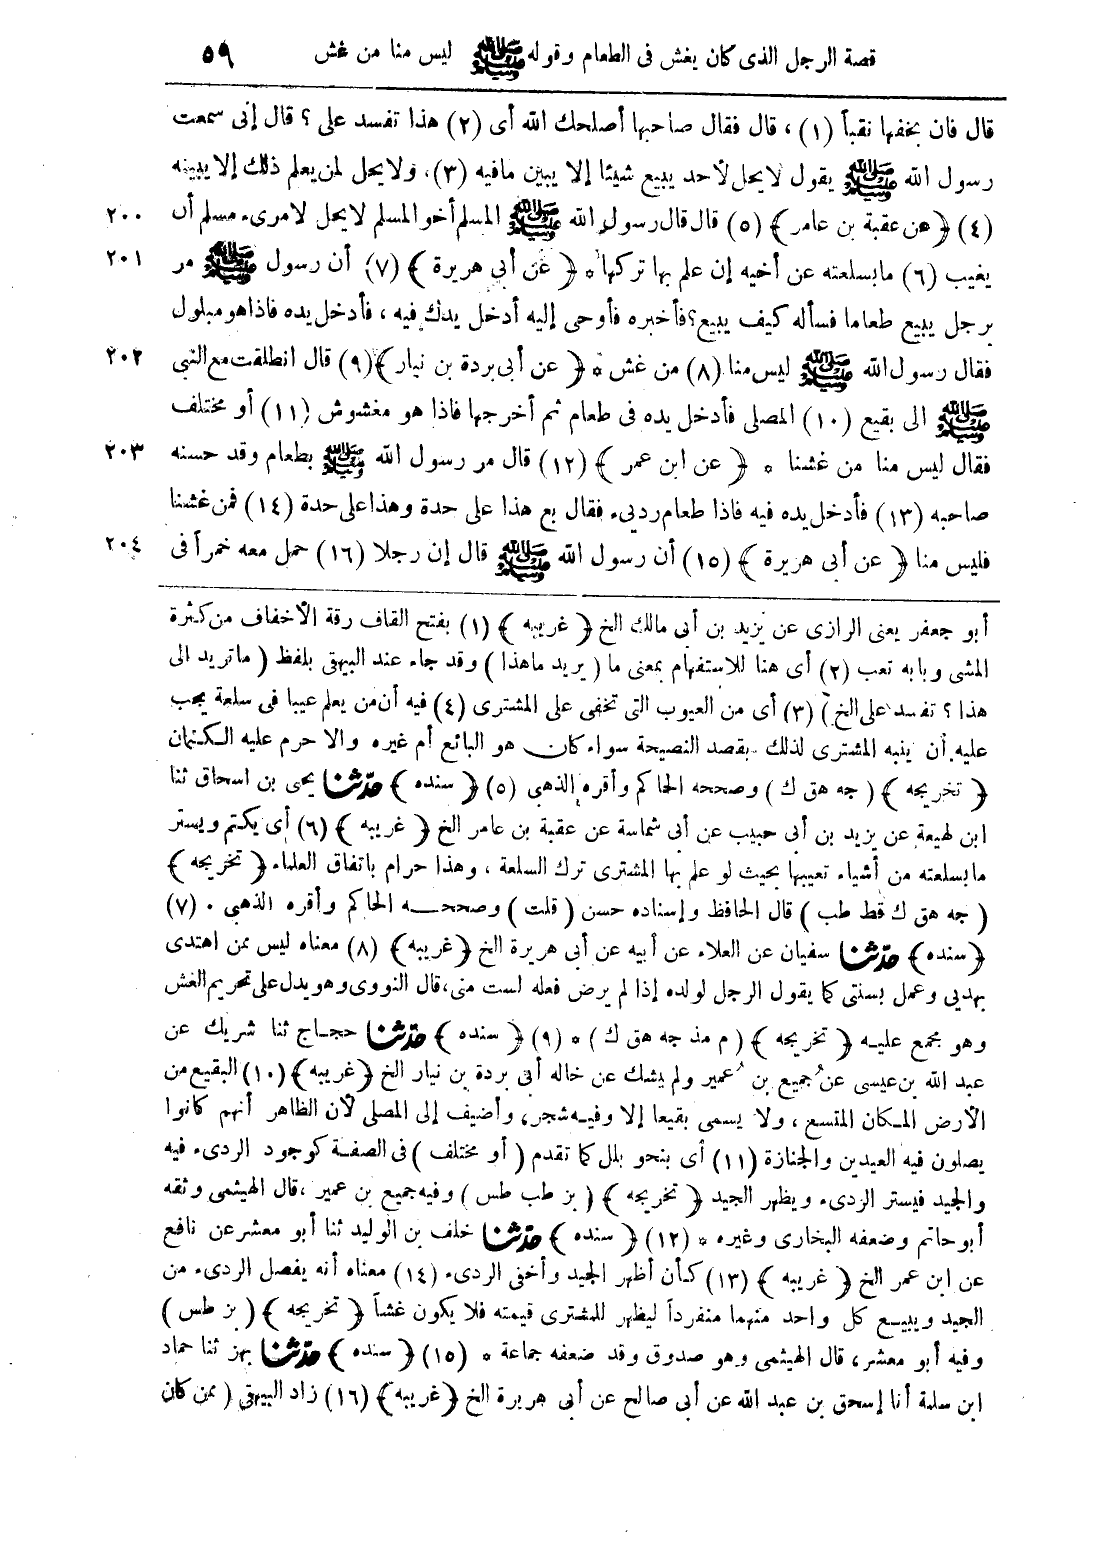 قصة الرجل الذى كان يغش فى الطعام وقوله ﷺ ليس منا من غش ٥٩
قال فان بخفها نقبأ (١) ، قال فقال صاحبها أصلحك الله أى (٢) هذا تفسد على ؟ قال إنى سمعت
رسول الله ﷺ يقول لايحل لأحد يبيع شيئا إلا يبين مافيه (٣)، ولايحل لمن يعلم ذلك إلا يبينه
(٤) ﴿ عن عقبة بن عامر ﴾ (٥) قال قال رسول الله ﷺ المسلم أخو المسلم لايحل لامرىء مسلم أن ٢٠٠
يغيب (٦) مابسلعته عن أخيه إن علم بها تركها * ﴿ عن أبى هريرة ﴾ (٧) أن رسول ﷺ مر ٢٠١
برجل يبيع طعاما فسأله كيف يبيع؟ فأخبره فأوحى إليه أدخل يدك فيه ، فأدخل يده فاذا هو مبلول
فقال رسول الله ﷺ ليس منا (٨) من غش * ﴿ عن أبى بردة بن نيار ﴾(٩) قال انطلقت مع النبى ٢٠٢
ﷺ الى بقيع (١٠) المصلى فأدخل يده فى طعام ثم أخرجها فاذا هو مغشوش (١١) أو مختلف
فقال ليس منا من غشنا * ﴿ عن ابن عمر ﴾ (١٢) قال مر رسول الله ﷺ بطعام وقد حسنه ٢٠٣
صاحبه (١٣) فأدخل يده فيه فاذا طعام ردىء فقال بع هذا على حدة وهذا على حدة (١٤) فمن غشنا
فليس منا ﴿ عن أبى هريرة ﴾ (١٥) أن رسول الله ﷺ قال إن رجلا (١٦) حمل معه خمراً فى ٢٠٤
أبو جعفر يعنى الرازى عن يزيد بن أبى مالك الخ ﴿ غريبه ﴾ (١) بفتح القاف رقة الأخفاف من كثرة
المشى وبابه تعب (٢) أى هنا للاستفهام بمعنى ما ( يريد ماهذا ) وقد جاء عند البيهقى بلفظ ( ماتريد الى
هذا ؟ تفسد على الخ ) (٣) أى من العيوب التى تخفى على المشترى (٤) فيه أن من يعلم عيبا فى سلعة يجب
عليه أن ينبه المشترى لذلك بقصد النصيحة سواء كان هو البائع أم غيره والا حرم عليه الكتمان
﴿ تخريجه ﴾ ( جه هق ك ) وصححه الحاكم وأقره الذهبى (٥) ﴿ سنده ﴾ حدّثنا يحي بن اسحاق ثنا
ابن لهيعة عن يزيد بن أبى حبيب عن أبى شماسة عن عقبة بن عامر الخ ﴿ غريبه ﴾ (٦) أى يكتم ويستر
مابسلعته من أشياء تعيبها بحيث لو علم بها المشترى ترك السلعة ، وهذا حرام باتفاق العلماء ﴿ تخريجه ﴾
( جه هق ك قط طب ) قال الحافظ وإسناده حسن ( قلت ) وصححه الحاكم وأقره الذهبى . (٧)
﴿ سنده ﴾ حدّثنا سفيان عن العلاء عن أبيه عن أبى هريرة الخ ﴿غريبه﴾ (٨) معناه ليس ممن اهتدى
بهديى وعمل بسنتى كما يقول الرجل لولده إذا لم يرض فعله لست منى، قال النووى وهو يدل على تحريم الغش
وهو مجمع عليه ﴿ تخريجه ﴾ ( م مذ جه هق ك ) * (٩) ﴿ سنده ﴾ حدّثنا حجاج ثنا شريك عن
عبد الله بن عيسى عن جميع بن عمير ولم يشك عن خاله أبى بردة بن نيار الخ ﴿غريبه﴾ (١٠) البقيع من
الأرض المكان المتسع ، ولا يسمى بقيعا إلا وفيه شجر، وأضيف إلى المصلى لأن الظاهر أنهم كانوا
يصلون فيه العيدين والجنازة (١١) أى بنحو بلل كما تقدم ( أو مختلف ) فى الصفة كوجود الردىء فيه
والجيد فيستر الردىء ويظهر الجيد ﴿ تخريجه ﴾ ( بز طب طس ) وفيه جميع بن عمير ، قال الهيثمى وثقه
أبو حاتم وضعفه البخارى وغيره * (١٢) ﴿ سنده ﴾ حدّثنا خلف بن الوليد ثنا أبو معشر عن نافع
عن ابن عمر الخ ﴿ غريبه ﴾ (١٣) كأن أظهر الجيد وأخفى الردىء (١٤) معناه أنه يفصل الردىء من
الجيد ويبيع كل واحد منهما منفرداً ليظهر للمشترى قيمته فلا يكون غشاً ﴿ تخريجه ﴾ ( بز طس )
وفيه أبو معشر، قال الهيثمى وهو صدوق وقد ضعفه جماعة * (١٥) ﴿ سنده ﴾ حدّثنا بهز ثنا حماد
ابن سلمة أنا إسحق بن عبد الله عن أبى صالح عن أبى هريرة الخ ﴿غريبه﴾ (١٦) زاد البيهقى ( ممن كان